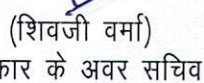 (शिवजी वर्मा)
के अवर सचिव